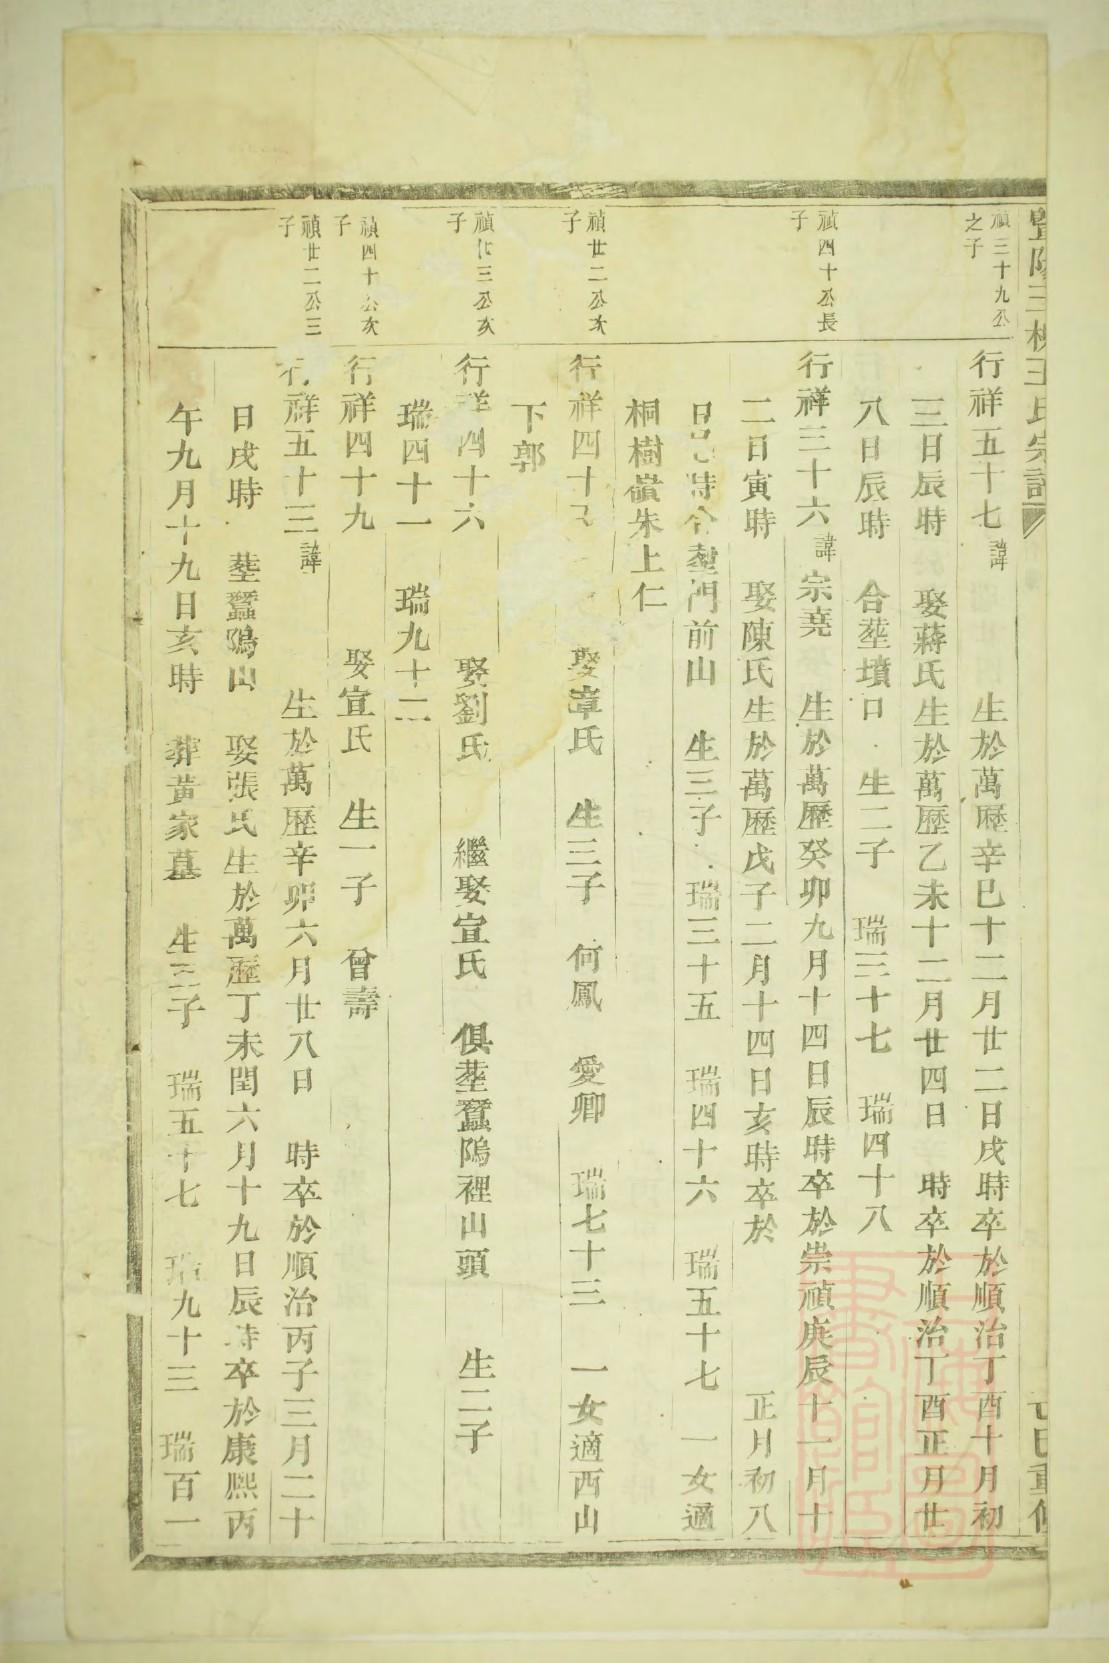 暨陽三槐王氏宗譜
禎三十九公
之子
行祥五十七諱 生於萬歷辛巳十二月廿二日戌時卒於順治丁酉十月初
三日辰時 娶蔣氏生於萬歷乙未十二月廿四日 時卒於順治丁酉正月廿
八日辰時 合塟墳口 生二子 瑞三十七 瑞四十八
禎四十公長
子
行祥三十六諱宗堯 生於萬歷癸卯九月十四日辰時卒於崇禎庚辰十一月十
二日寅時 娶陳氏生於萬歷戊子二月十四日亥時卒於 正月初八
日 時合塟門前山 生三子 瑞三十五 瑞四十六 瑞五十七 一女適
桐樹嶺朱上仁
禎廿二公次
子
行祥四十 娶章氏 生三子 何鳳 愛卿 瑞七十三 一女適西山
下郭
禎 三公次
子
行祥四十六 娶劉氏 繼娶宣氏 俱塟蠶隖裡山頭 生二子
瑞四十一 瑞九十二
禎四十公次
子
行祥四十九 娶宣氏 生一子 曾壽
禎廿二公三
子
行祥五十三諱 生於萬歷辛卯六月廿八日 時卒於順治丙子三月二十
日戌時 塟蠶隖山 娶張氏生於萬歷丁未閏六月十九日辰時卒於康熙丙
午九月十九日亥時 葬黃家墓 生三子 瑞五十七 瑞九十三 瑞百一